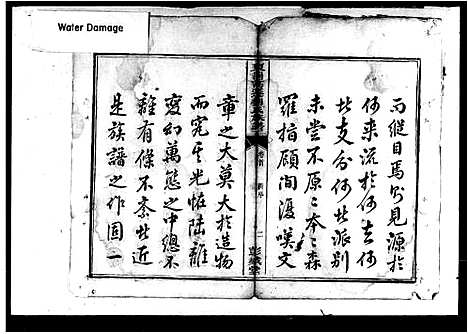 Water Damage
而縱目焉則見源於
何來流於何去何
此支分何此派別
未尝不原原本本森
羅指顧間渡嘆文
卷首
新序
二
彭城堂
章之大莫大於造物
而究其光怪陆離
變幻萬態之中總不
離有條不紊此近
是族譜之作固一